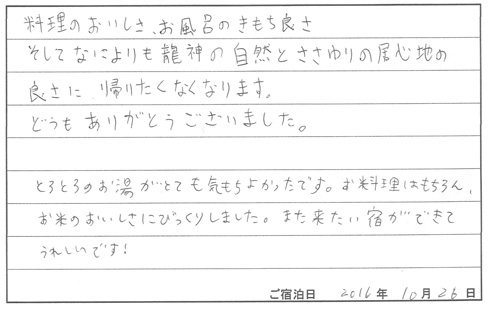 料理のおいしさ、お風呂のきもち良さ
そしてなによりも龍神の自然とささゆりの居心地の
良さに、帰りたくなくなります。
どうもありがとうございました。
とろとろのお湯がとても気もちよかったです。お料理はもちろん、
お米のおいしさにびっくりしました。また来たい宿ができて
うれしいです!
ご宿泊日 2016年 10月 26日